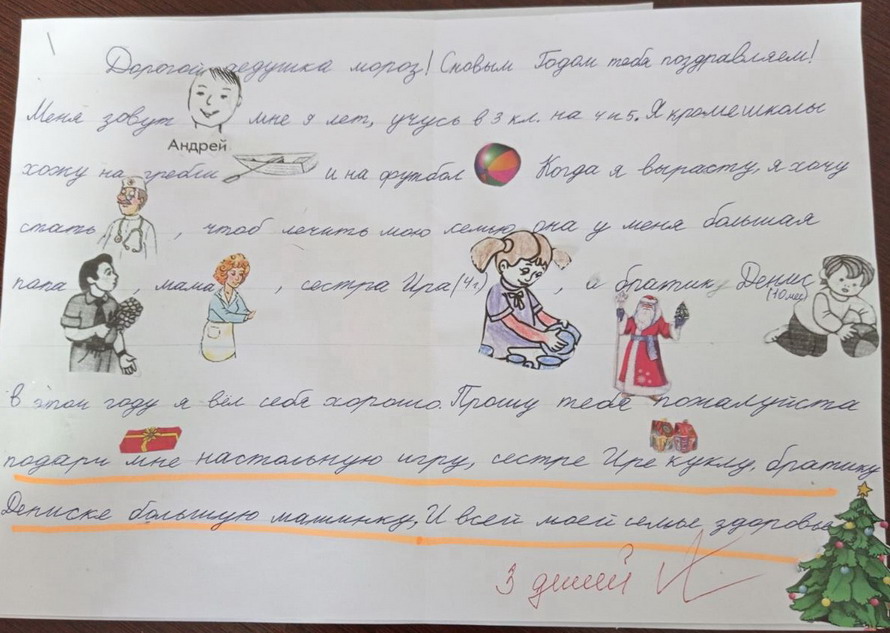 Дорогой дедушка мороз! Сновым Годом тебя поздравляем!
Меня зовут мне 9 лет, учусь в 3 кл. на 4 и 5. Я кроме школы
Андрей
хожу на гребли и на футбол Когда я вырасту, я хочу
стать , чтоб лечить мою семью она у меня большая
папа , мама , сестра Ира (4 г) , и братик Денис
(10 мес)
в этом году я вел себя хорошо. Прошу тебя пожалуйста
подари мне настольную игру, сестре Ире куклу, братику
Дениске большую машинку, И всей моей семье здоровье
3 детей